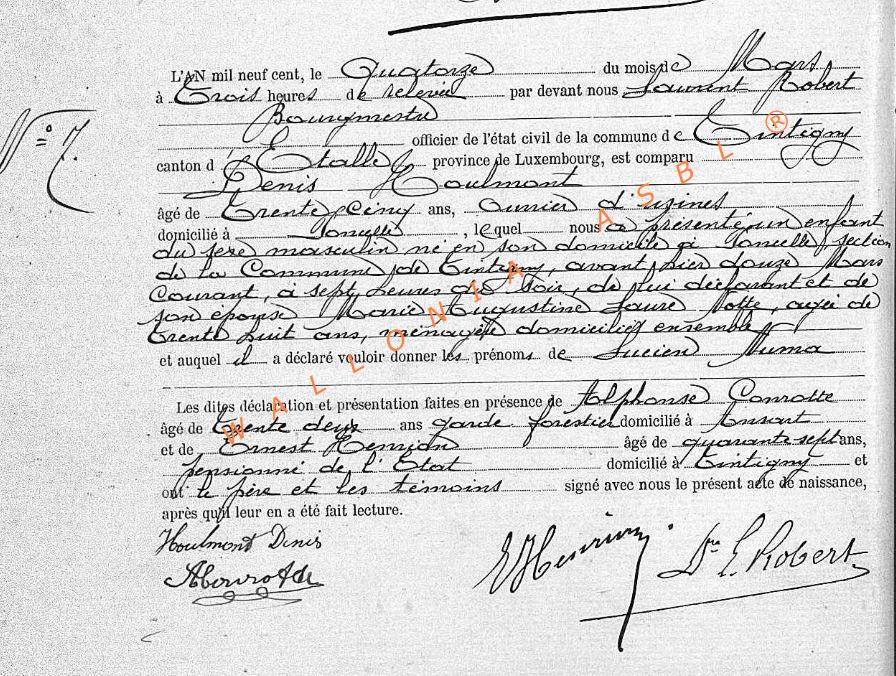 L'AN mil neuf cent, le Quatorze du mois de Mars
à Trois heures de relevée par devant nous Laurent Robert
Bourgmestre
officier de l'état civil de la commune de Tintigny
canton d'Etalle province de Luxembourg, est comparu
Denis Houlmont
N° 7.
âgé de Trente cinq ans, Ouvrier d'usines
domicilié à Poncelle, lequel nous a présenté un enfant
du sexe masculin né en son domicile à Poncelle, section
de la Commune de Tintigny, avant hier douze Mars
Courant, à sept heures du soir, de lui déclarant et de
son épouse Marie Augustine Laure Notte, agée de
trente huit ans, ménagère domiciliés ensemble
et auquel il a déclaré vouloir donner les prénoms de Lucien Numa
Les dites déclaration et présentation faites en présence de Alphonse Conrotte
âgé de trente deux ans garde forestier domicilié à Ansart
et de Ernest Henrion âgé de quarante sept ans,
pensionné de l'Etat domicilié à Tintigny et
ont le père et les témoins signé avec nous le présent acte de naissance,
après qu'il leur en a été fait lecture.
Houlmont Denis
AConrotte
EHenrion
Dr L. Robert
WALLONIA ASBL ®